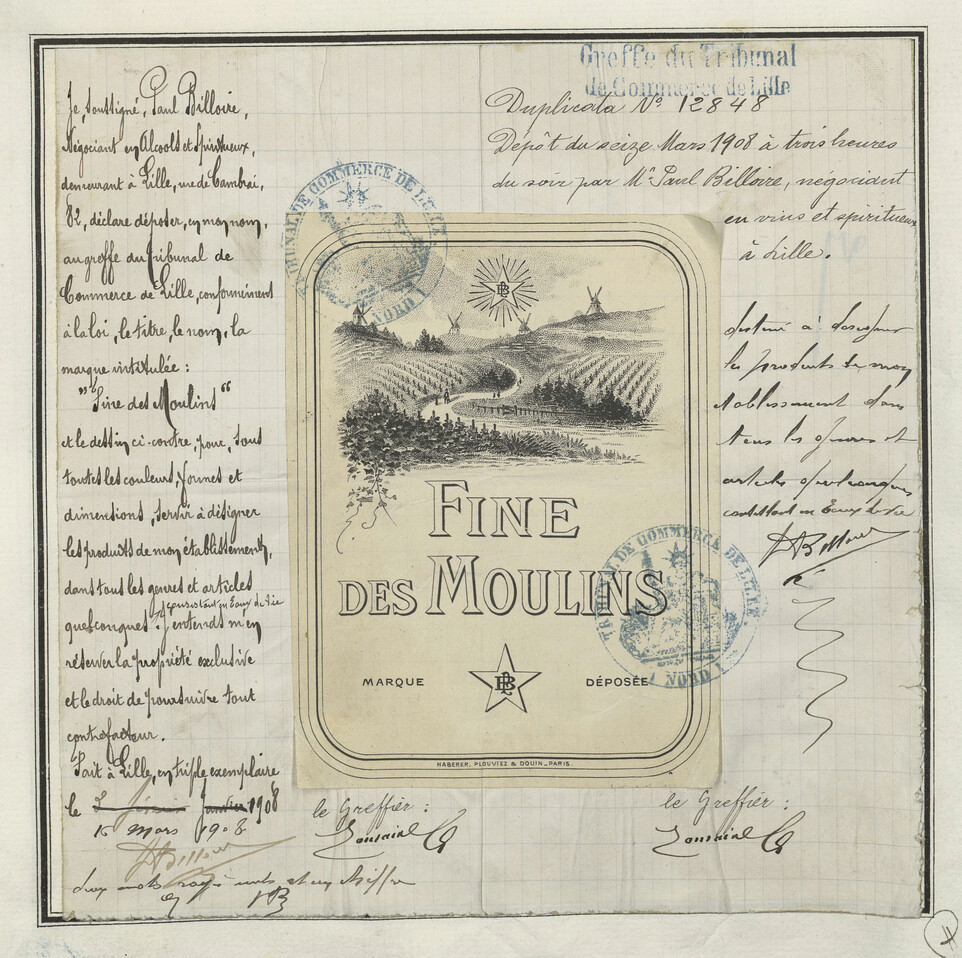 Je, soussigné, Paul Billoire,
Négociant en Alcools et Spiritueux,
demeurant à Lille, rue de Cambrai,
82, déclare déposer, en mon nom,
au greffe du Tribunal de
Commerce de Lille, conformément
à la loi, le titre, le nom, la
marque intitulée :
"Fine des Moulins"
et le dessin ci-contre, pour, sous
toutes les couleurs, formes et
dimensions, servir à désigner
les produits de mon établissement,
dans tous les genres et articles
consistant en Eaux de Vie
quelconques. J'entends m'en
réserver la propriété exclusive
et le droit de poursuivre tout
contrefacteur.
Fait à Lille, en triple exemplaire
le Janvier 1908
16 Mars 1908
PBilloire
deux mots rayés nuls et un chiffre
PB
Greffe du Tribunal
de Commerce de Lille
Duplicata No 12848
Dépôt du seize Mars 1908 à trois heures
du soir par Mr Paul Billoire, négociant
en vins et spiritueux
à Lille.
destiné à désigner
les produits de mon
établissement dans
tous les genres et
articles quelconques
consistant en Eaux de vie
PBilloire
TRIBUNAL DE COMMERCE DE LILLE
NORD
PB
FINE
DES MOULINS
MARQUE PB DÉPOSÉE
TRIBUNAL DE COMMERCE DE LILLE
NORD
HABERER, PLOUVIEZ & DOUIN_PARIS.
le Greffier :
le Greffier :